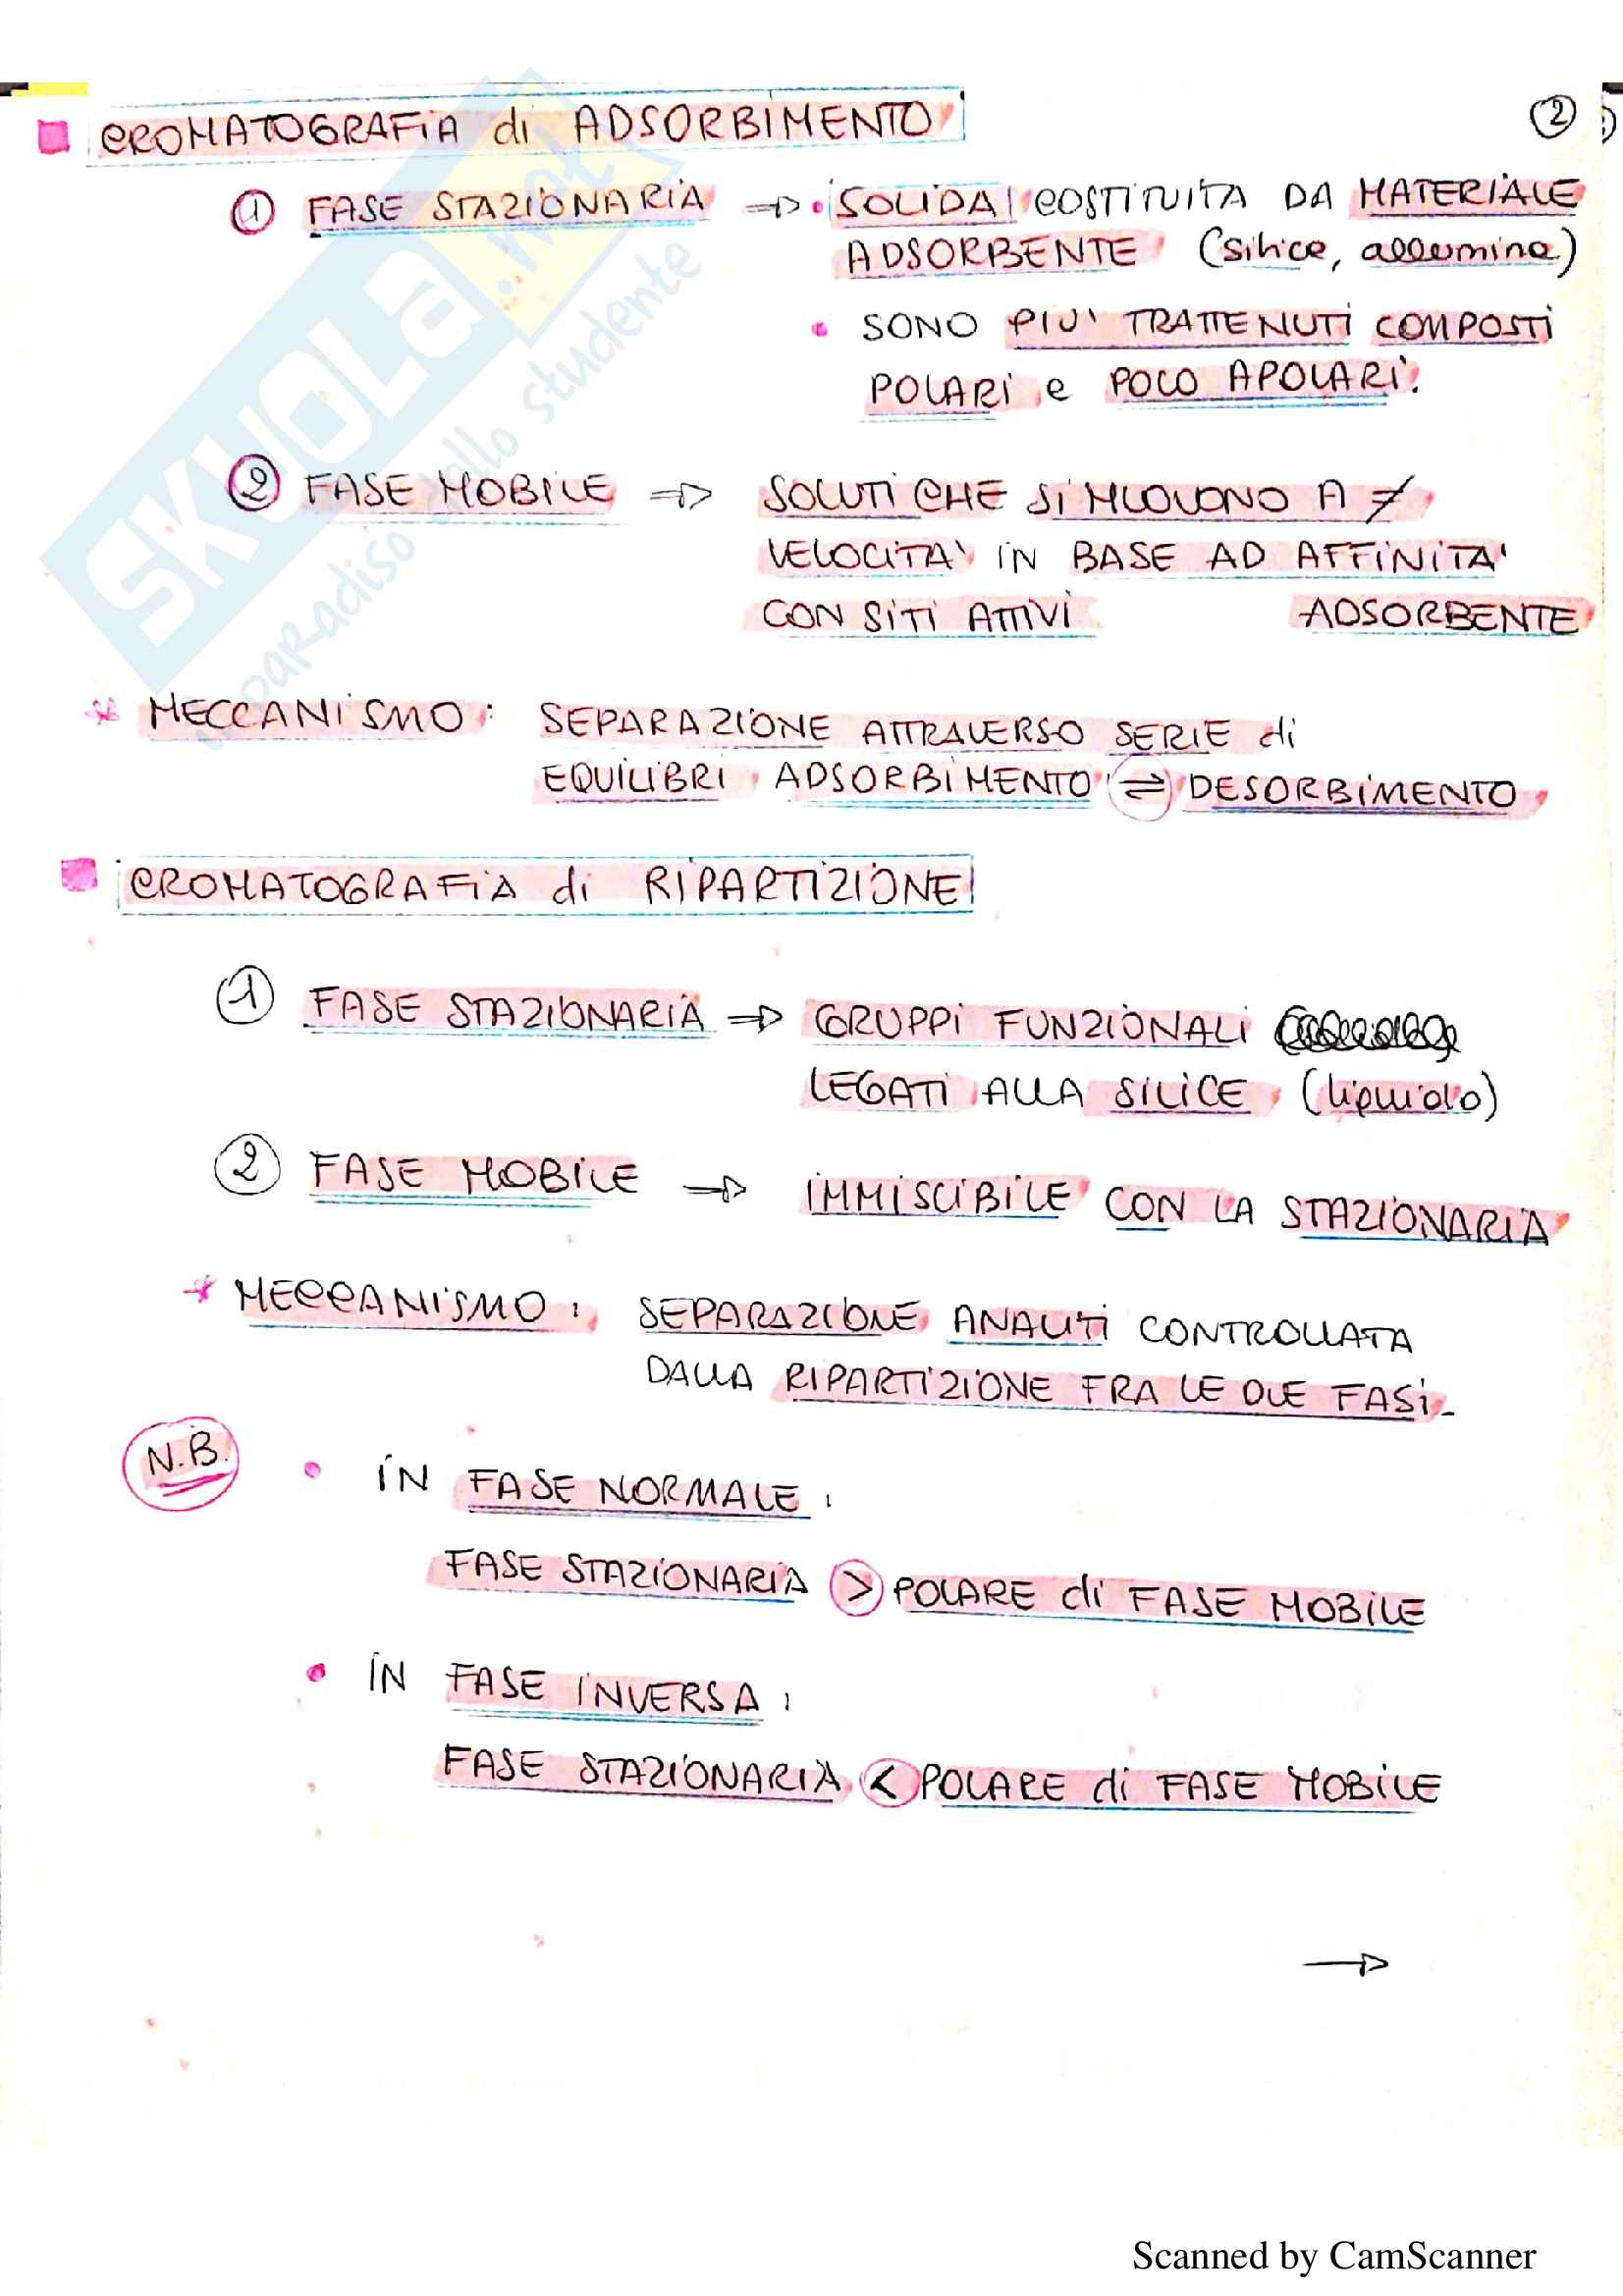 CROMATOGRAFIA di ADSORBIMENTO
2
1 FASE STAZIONARIA → • SOLIDA COSTITUITA DA MATERIALE
ADSORBENTE (silice, allumina)
• SONO PIU' TRATTENUTI COMPOSTI
POLARI e POCO APOLARI.
2 FASE MOBILE → SOLUTI CHE SI MUOVONO A ≠
VELOCITA' IN BASE AD AFFINITA'
CON SITI ATTIVI ADSORBENTE
* MECCANISMO: SEPARAZIONE ATTRAVERSO SERIE di
EQUILIBRI ADSORBIMENTO ⇌ DESORBIMENTO
CROMATOGRAFIA di RIPARTIZIONE
1 FASE STAZIONARIA → GRUPPI FUNZIONALI
LEGATI ALLA SILICE (liquido)
2 FASE MOBILE → IMMISCIBILE CON LA STAZIONARIA
* MECCANISMO: SEPARAZIONE ANALITI CONTROLLATA
DALLA RIPARTIZIONE FRA LE DUE FASI_
N.B. • IN FASE NORMALE:
FASE STAZIONARIA > POLARE di FASE MOBILE
• IN FASE INVERSA:
FASE STAZIONARIA < POLARE di FASE MOBILE
→
SKUOLA.net
il paradiso dello studente
Scanned by CamScanner